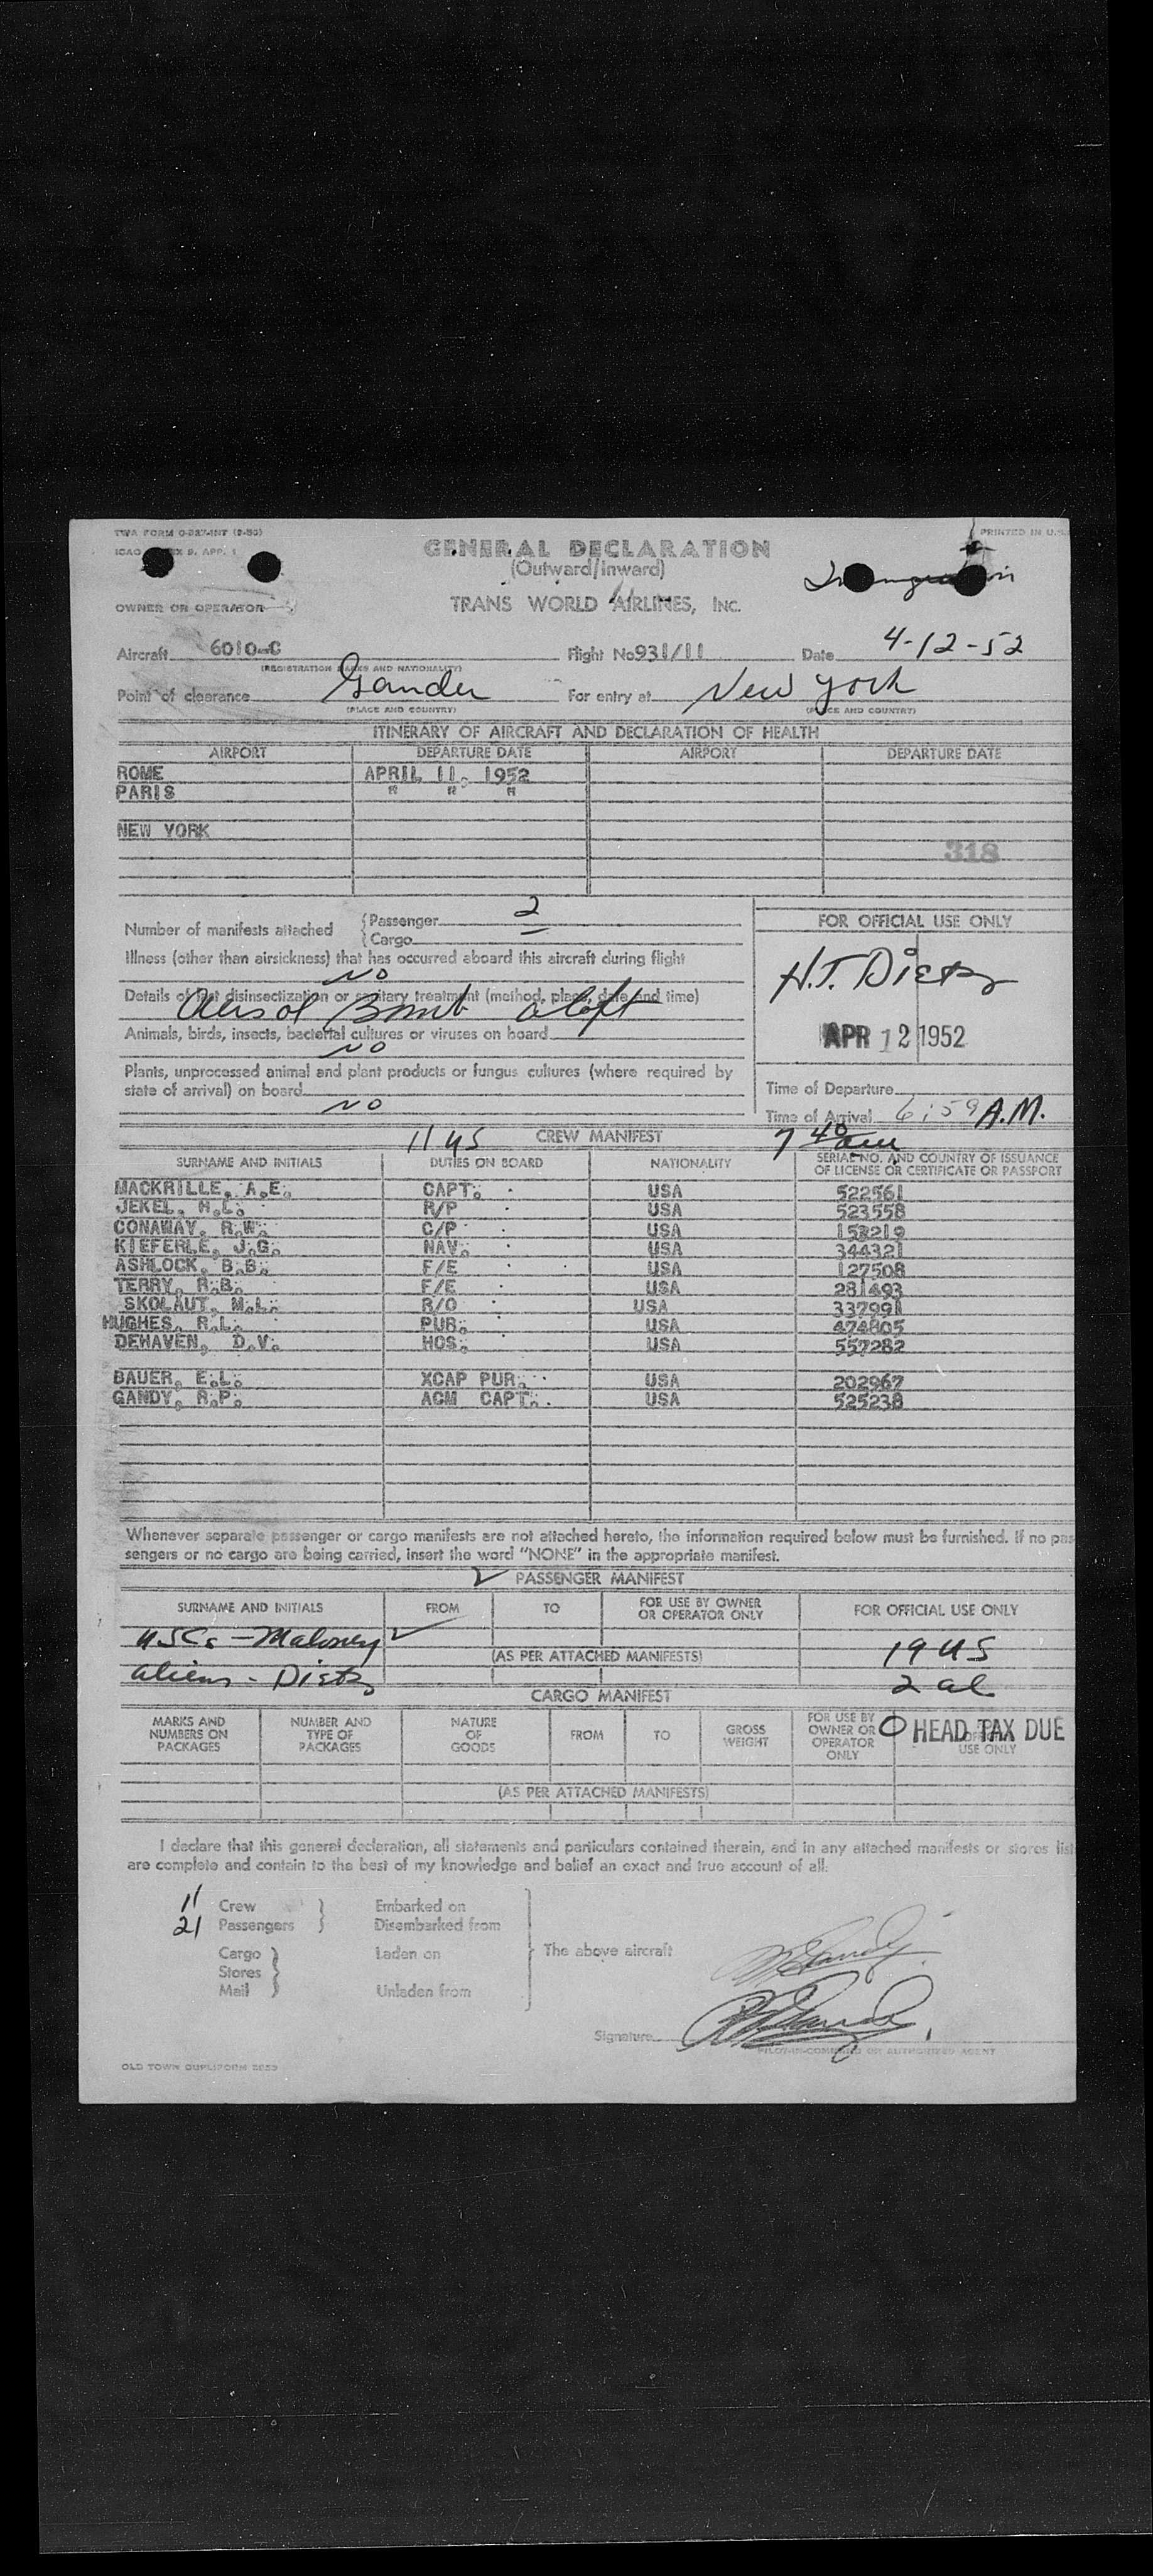 TWA FORM O-927-INT (9-50)
PRINTED IN U.S.
ICAO EX 9, APP. 1
GENERAL DECLARATION
(Outward/Inward)
Immigration
OWNER OR OPERATOR
TRANS WORLD AIRLINES, INC.
Aircraft 6010-C Flight No 931/11 Date 4-12-52
(REGISTRATION MARKS AND NATIONALITY)
Point of clearance Gander For entry at New York
(PLACE AND COUNTRY) (PLACE AND COUNTRY)
ITINERARY OF AIRCRAFT AND DECLARATION OF HEALTH
AIRPORT DEPARTURE DATE AIRPORT DEPARTURE DATE
ROME APRIL 11, 1952
PARIS " " "
NEW YORK
318
Number of manifests attached { Passenger 2
{ Cargo
FOR OFFICIAL USE ONLY
Illness (other than airsickness) that has occurred aboard this aircraft during flight
NO
H.T. Dietz
Details of last disinsectization or sanitary treatment (method, place, date and time)
Aersol Bomb aloft
Animals, birds, insects, bacterial cultures or viruses on board
NO
APR 12 1952
Plants, unprocessed animal and plant products or fungus cultures (where required by
state of arrival) on board
NO
Time of Departure
Time of Arrival 6:59 A.M.
11 US CREW MANIFEST 7 40 am
SURNAME AND INITIALS DUTIES ON BOARD NATIONALITY SERIAL NO. AND COUNTRY OF ISSUANCE
OF LICENSE OR CERTIFICATE OR PASSPORT
MACKRILLE, A.E. CAPT. USA 522561
JEKEL, H.L. R/P USA 523558
CONAWAY, R.W. C/P USA 153219
KIEFERLE, J.G. NAV. USA 344321
ASHLOCK, B.B. F/E USA 127508
TERRY, R.B. F/E USA 281493
SKOLAUT, M.L. R/O USA 337991
HUGHES, R.L. PUR. USA 474805
DEHAVEN, D.V. HOS. USA 557282
BAUER, E.L. XCAP PUR. USA 202967
GANDY, R.P. ACM CAPT. USA 525238
Whenever separate passenger or cargo manifests are not attached hereto, the information required below must be furnished. If no pas
sengers or no cargo are being carried, insert the word "NONE" in the appropriate manifest.
PASSENGER MANIFEST
SURNAME AND INITIALS FROM TO FOR USE BY OWNER
OR OPERATOR ONLY FOR OFFICIAL USE ONLY
USCs - Maloney 19 US
(AS PER ATTACHED MANIFESTS)
aliens - Dietz 2 al
CARGO MANIFEST
MARKS AND
NUMBERS ON
PACKAGES NUMBER AND
TYPE OF
PACKAGES NATURE
OF
GOODS FROM TO GROSS
WEIGHT FOR USE BY
OWNER OR
OPERATOR
ONLY
0 HEAD TAX DUE
USE ONLY
(AS PER ATTACHED MANIFESTS)
I declare that this general declaration, all statements and particulars contained therein, and in any attached manifests or stores list
are complete and contain to the best of my knowledge and belief an exact and true account of all:
11 Crew } Embarked on
21 Passengers } Disembarked from
Cargo } Laden on The above aircraft
Stores }
Mail } Unladen from
Signature
PILOT-IN-COMMAND OR AUTHORIZED AGENT
OLD TOWN DUPLIFORM